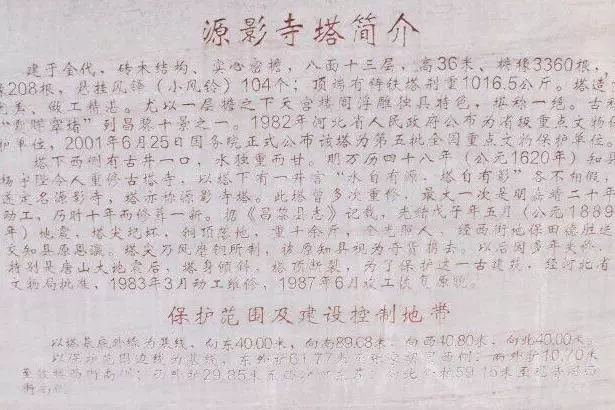 源影寺塔简介
建于金代，砖木结构、实心密檐，八面十三层，高36米、檐椽3360根，
椽208根，悬挂风铎（小风铃）104个；顶端有铸铁塔刹重1016.5公斤。塔造
完美、做工精湛。尤以一层檐之下天宫楼阁浮雕独具特色，堪称一绝。古
到昌黎十景之一。1982年河北省人民政府公布为省级重点文物保
护单位，2001年6月25日国务院正式公布该塔为第五批全国重点文物保护单位。
塔下西侧有古井一口，水独重而甘。明万历四十八年（公元1620年）知县
杨于陛令人重修古塔寺，以塔下有一井言“水自有源，塔自有影”各不相假，
遂定名源影寺，塔亦称源影寺塔。此塔曾多次重修，最大一次是明嘉靖二十
动工，历时十年而修葺一新。据《昌黎县志》记载，光绪戊子年五月（公元1889
年）地震，塔尖圮坏，铜顶落地，重十余斤，金光照人，经西街地保田德胜送
交知县原恩瀛。塔尖乃风磨铜所制，该原知县视为奇货捐去。以后因多年失修，
特别是唐山大地震后，塔身倾斜，塔顶断裂，为了保护这一古建筑，经河北省
文物局批准，1983年3月动工维修，1987年6月竣工恢复原貌。
保护范围及建设控制地带
以塔基底外缘为基线，向东40.00米，向南89.08米，向西40.80米，向北40.00米。
以保护范围边线为基线，东外扩61.77米 西外扩10.70米
29.85米 59.15米